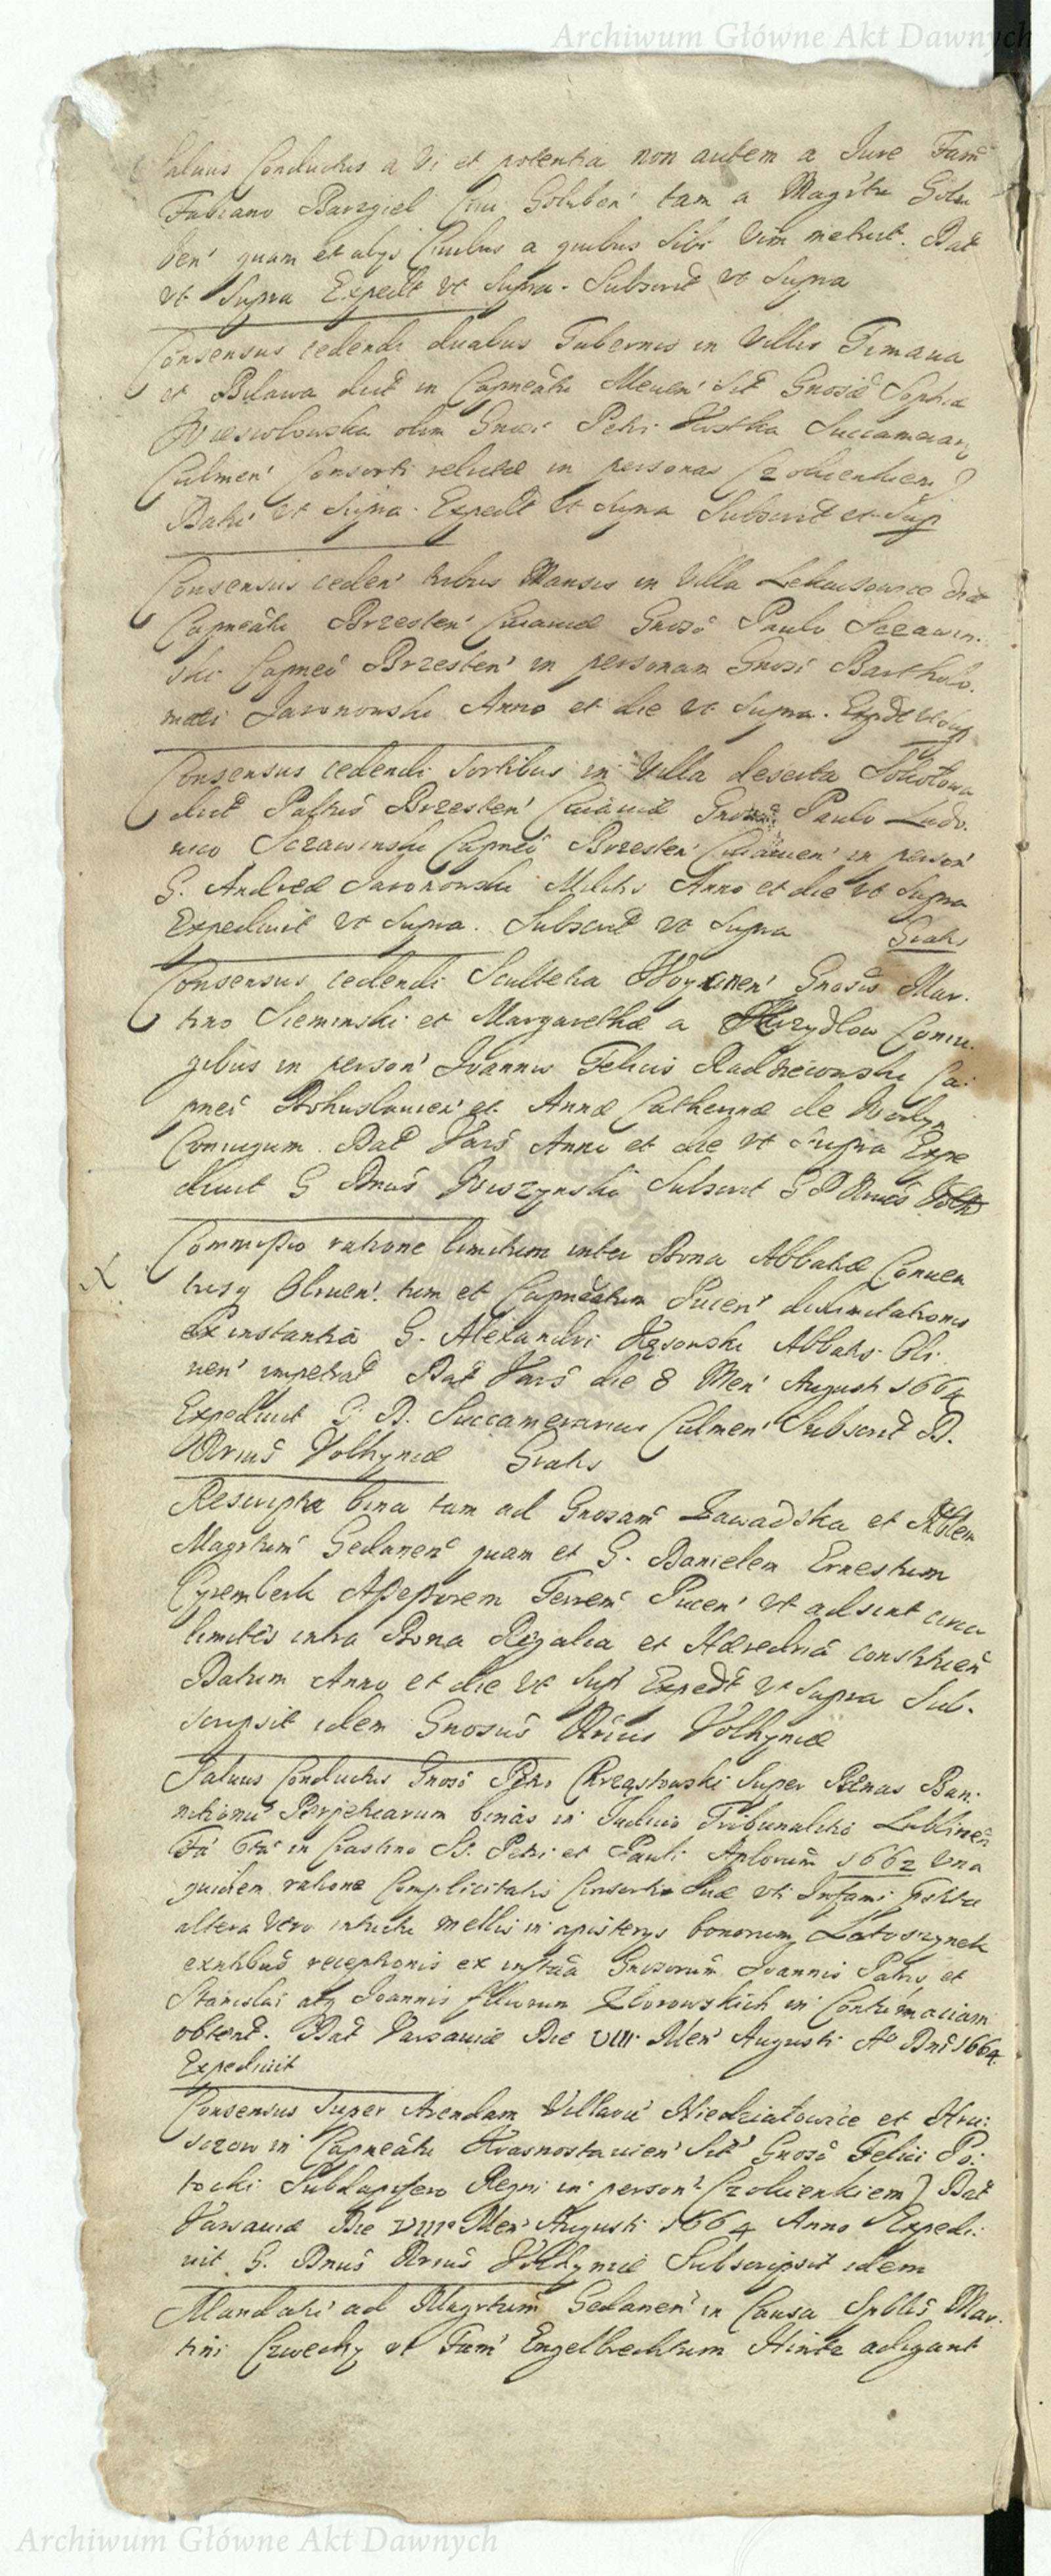 Archiwum Główne Akt Dawnych
Salvus Conductus a Vi et potentia non autem a Iure Fam̃
Fabiano Barzgiel Civi Golubeń tam a Magr̃tu Golu
beń quam et alys Civibus a quibus sibi Vim metuit. Dat̃
vt Supra Expedt vt Supra. Subscrit̃ vt Supra
Consensus cedendi duabus Tabernis in Villis Timaua
et Bilawa dict̃ in Capneãtu Meueń sit̃ Gnosæ Sophiæ
olim Gnosi Petri Kostka Succamerarÿ
Culmeń Consorti relictæ in personas (zokienkiem)
Dat̃ vt Supra. Expedt̃ vt Supra Subscrit̃ vt Sup
Consensus cedeń tribus Mansis in Villa dict̃
Capneãtu Brzesteń Cuiaviæ Gnoso Paulo Sczawin.
ski Capneo Brzesteń in personam Gnosi Bartholo.
mæi Jaronowski Anno et die vt Supra. Expdt vt Sup
Consensus cedendi sortibus in Villa deserta
dict̃ Pal̃tus Brzesteń Cuiaviæ Gnoso Paulo Ludo.
uico Sczawinski Capneo Brzesteń Cuiavień in persoń
G. Andreæ Jaronowski Militis Anno et die vt Supra
Expedivit vt Supra. Subscrit̃ vt Supra Gratis
Consensus cedendi Scultetia Gnosis Mar.
tino Sieminski et Margarethæ a Skrzydlow Coniu.
gibus in persoń Joannis Felicis Radzieiowski Ca:
pnei et Annæ Catherinæ de
Coniugum. Dat̃ Vars̃ Anno et die vt Supra Expe
divit G Dnus̃ Wyszynski Subscrit G D
X Commissio ratione limitum inter Bona Abbatiæ Conuen
tusq̨ Oliveń. tum et Capneãtum Puceń delimitationis
Ex instantia G. Alexandri Kęsowski Abbatis Oli.
veń impetrat̃ Dat̃ Vars̃ die 8 Meń Augusti 1664
Expedivit G. D. Succamerarius Culmeń Subscrit̃ D.
Volhyniæ Gratis
Rescripta bina tam ad Gnosam̃ Zawadska et Nobilem
Magrtum̃ Gedaneń quam et G. Danielem Ernestum
Cyremberk Assessorem Terreñ Puceń vt adsint circa
limites intra Bona Regalia et Hæreditaria
Datum Anno et die vt Supr̃ Expedt̃ vt Supra Sub.
scripsit idem Gnosus̃ Volhyniæ
Salvus Conductus Gnoso Petro Chrząstowski Super Pænas Ban.
nitionis Perpetuarum binas in Iudicio Tribunalitio Lublineñ
in Crastino SS. Petri et Pauli Aplorum̃ 1662 Vna
quidem ratione Complicitatis Consortis Suæ vti
altera Vero intuitu mellis in apisterys bonorum Latoszynek
receptionis ex insta̅ Gnosorum̃ Joannis Patris et
Stanislai atq̨ Joannis filiorum Zborowskich in Contumaciam
obtent. Dat̃ Varsaviæ Die VIII Meń Augusti Ao Dni 1664
Expedivit
Consensus Super Arendam Villarũ Niedziałowice et Kru:
szow in Capneãtu Krasnostavień Sit̃ Gnoso Felici Po:
tocki Subdapifero Regni in persoń (zokienkiem) Dat̃
Varsaviæ Die VIII Meń Augusti 1664 Anno Expedi:
vit G. Dnus̃ Volhyniæ Subscripsit idem
Mandatũ ad Magrtum̃ Gedaneń in Causa Spblis̃ Mar.
tini vt Fam̃ Engelbrechtum Hintz adigant
Archiwum Główne Akt Dawnych